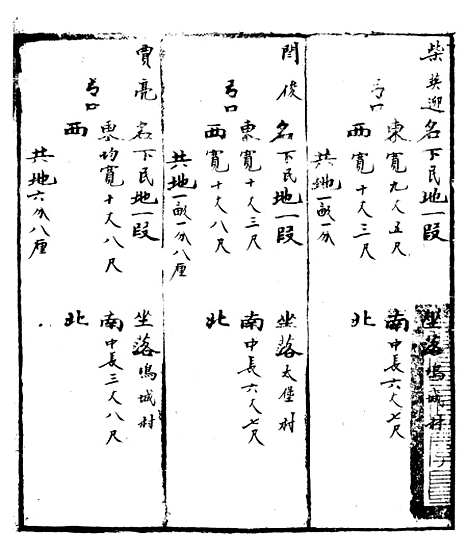 柴英迎名下民地一段 坐落鳴城村
弓口
東寬九丈五尺 南中長六丈七尺
西寬十丈三尺 北
共地一畝一分
閆俊名下民地一段 坐落太堡村
弓口
東寬十丈三尺 南中長六丈七尺
西寬十丈八尺 北
共地一畝一分八厘
賈亮名下民地一段 坐落鳴城村
弓口
東均寬十丈八尺 南中長三丈八尺
西 北
共地六分八厘